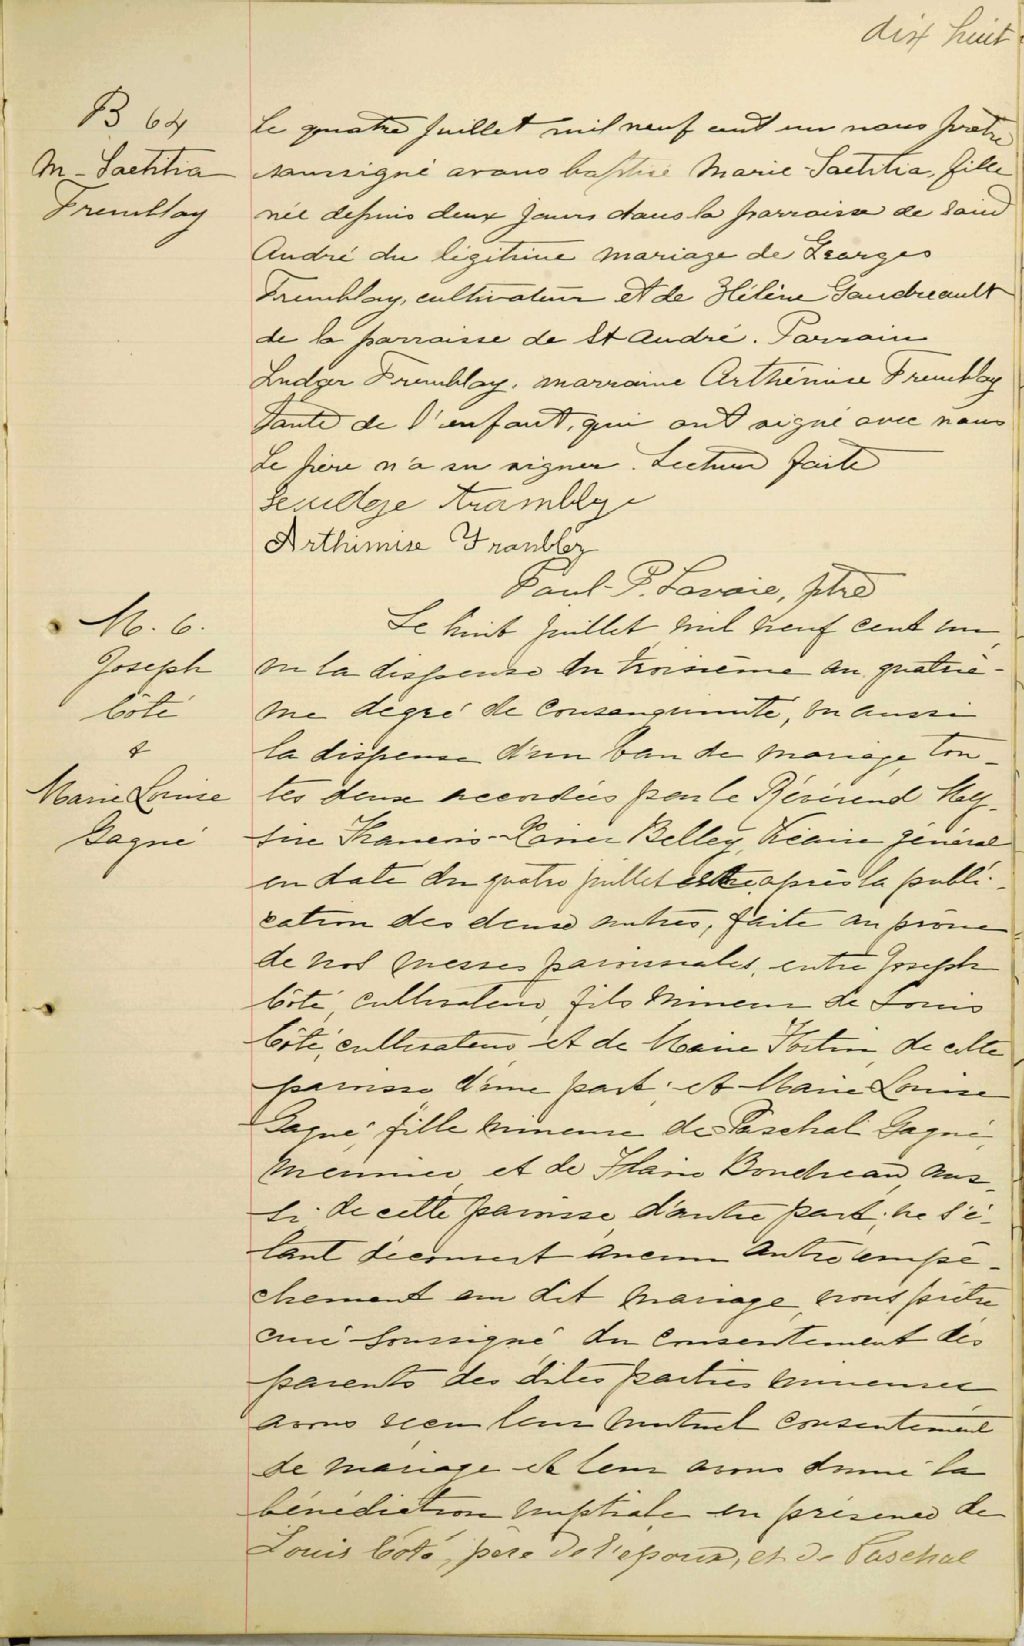 dix huit
B 64
M - Laetitia
Tremblay
Le quatre Juillet mil neuf cent un nous prêtre
soussigné avons baptisé Marie-Laetitia, fille
née depuis deux jours dans la parroisse de Saint
André du légitime mariage de Georges
Tremblay, cultivateur et de Hélène Gaudreault
de la parroisse de St André. Parrain
Ludger Tremblay, marraine Arthémise Tremblay
tante de l'enfant, qui ont signé avec nous
Le père n'a su signer. Lecture faite
Arthimise
Paul-P. Lavoie, ptre
M. 6.
Joseph
Côté
&
Marie Louise
Gagné
Le huit juillet mil neuf cent un,
vu la dispense du troisième au quatriè-
me degré de consanguinité, vu aussi
la dispense d'un ban de mariage, tou-
tes deux accordées par le Révérend Mes-
sire François-Xavier Belley, Vicaire général
en date du quatre juillet après la publi-
cation des deux autres, faite au prône
de nos messes paroissiales, entre Joseph
Côté, cultivateur, fils mineur de Louis
Côté, cultivateur, et de Marie Fortin, de cette
paroisse d'une part; et Marie Louise
Gagné, fille mineure de Paschal Gagné,
meunier, et de Boudreau, aus-
si de cette paroisse, d'autre part; ne s'é-
tant découvert aucun autre empê-
chement au dit mariage, nous prêtre
curé soussigné, du consentement des
parents des dites parties mineures
avons reçu leur mutuel consentement
de mariage et leur avons donné la
bénédiction nuptiale en présence de
Louis Côté, père de l'époux, et de Paschal